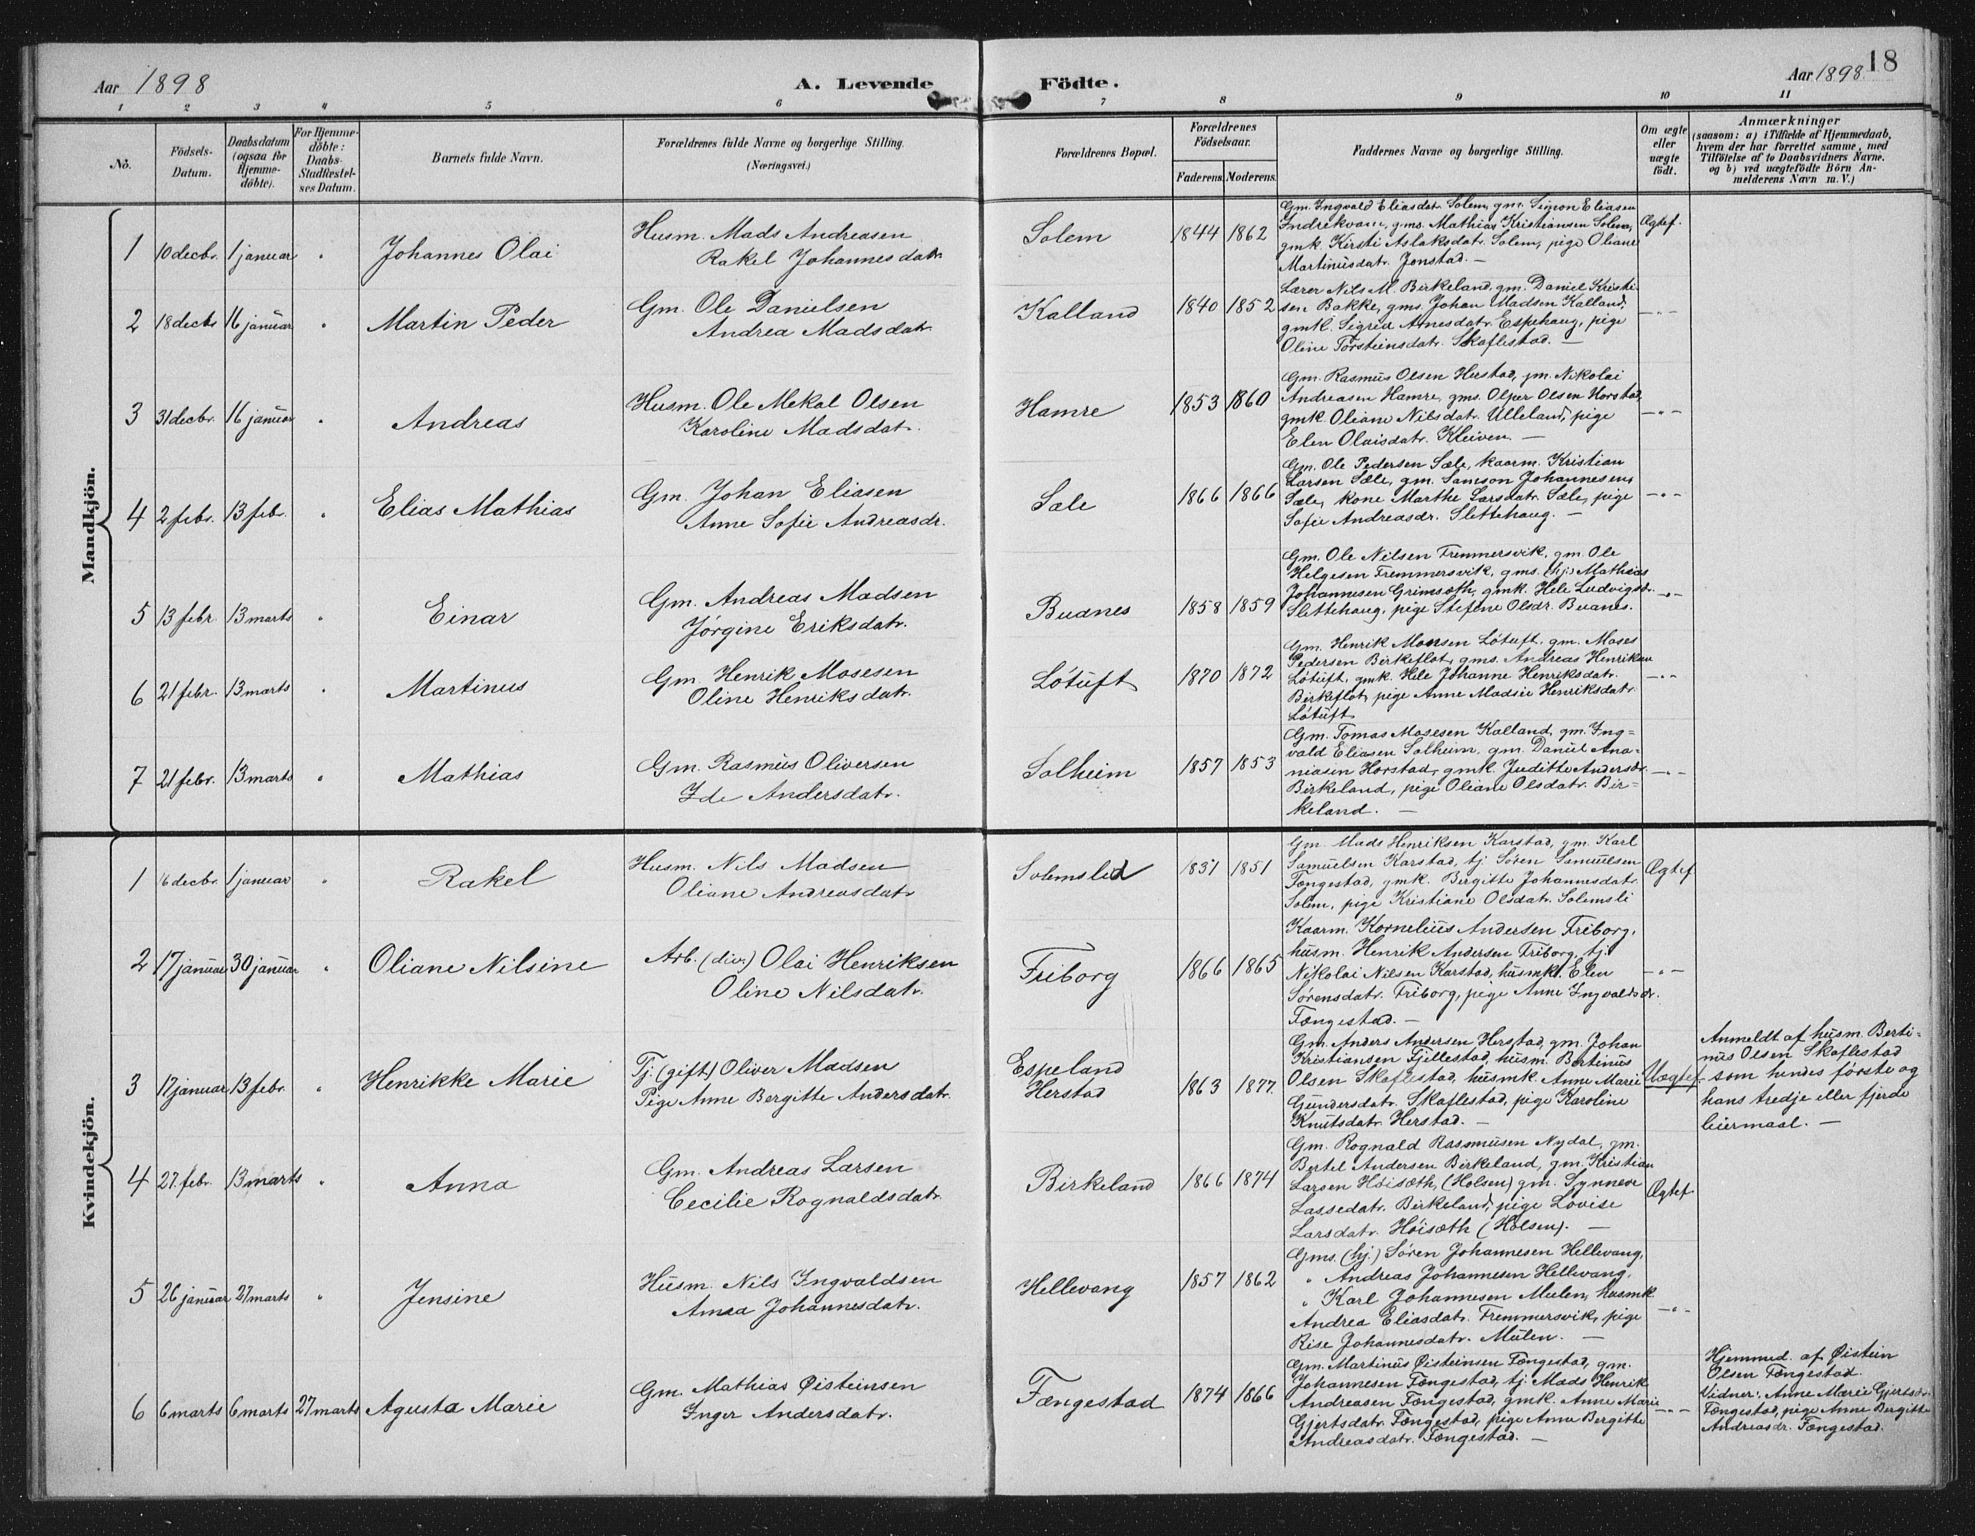 Aar 1898
A. Levende
Födte.
Aar 1898.
18
1 2 3 4 5 6 7 8 9 10 11
No.
Födsels-
Datum.
Daabsdatum
(ogsaa for
Hjemme-
döbte).
For Hjemme-
döbte:
Daabs-
Stadfæstel-
ses Datum.
Barnets fulde Navn.
Forældrenes fulde Navne og borgerlige Stilling.
(Næringsvei.)
Forældrenes Bopæl.
Forældrenes
Födselsaar.
Faderens. Moderens.
Faddernes Navne og borgerlige Stilling.
Om ægte
eller
uægte
födt.
Anmærkninger
(saasom: a) i Tilfælde af Hjemmedaab,
hvem der har forrettet samme, med
Tilföielse af to Daabsvidners Navne.
og b) ved uægtefödte Börn An-
melderens Navn m. V.)
Mandkjön.
1 10 decbr. 1 januar " Johannes Olai
Husm. Mads Andreasen
Rakel Johannesdatr.
Solem 1844 1862
Gm. Ingvald Eliasdat. Solem, gm. Simon Eliasen
Indrekvam, gms. Mathias Kristiansen Solem,
gmk. Kirsti Aslaksdatr. Solem, pige Oliane
Martinusdatr. Jonstad. —
Ægtef.
2 18 decbr 16 januar " Martin Peder
Gm. Ole Danielsen
Andrea Madsdatr.
Kalland 1840 1852
Lærer Nils M. Birkeland, gm. Daniel Kristi-
sen Bakke, gms. Johan Madsen Kalland,
gmk. Sigrid Arnesdatr. Espehaug, pige
Oline Torsteinsdatr. Skaflestad. —
—"—
3 31 decbr. 16 januar " Andreas
Husm. Ole Mekal Olsen
Karoline Madsdat.
Hamre 1853 1860
Gm. Rasmus Olsen Herstad, gm. Nikolai
Andreasen Hamre, gms. Olper Olsen Horstad,
gmk. Oliane Nilsdatr. Ulleland, pige
Elen Olaisdatr. Kleiven. —
—"—
4 2 febr. 13 febr. " Elias Mathias
Gm. Johan Eliasen
Anne Sofie Andreasdr.
Sæle 1866 1866
Gm. Ole Pedersen Sæle, kaarm. Kristian
Larsen Sæle, gm. Samson Johannesen,
Sæle, kone Marthe Larsdatr. Sæle, pige
Sofie Andreasdr. Slettehaug. —
—"—
5 13 febr 13 marts " Einar
Gm. Andreas Madsen
Jørgine Eriksdatr.
Buanes 1858 1859
Gm. Ole Nilsen Fremmersvik, gm. Ole
Helgesen Fremmersvik, gms. (hj.) Mathias
Johannesen Grimsæth, gmk. Hele Ludvigsdr.
Slettehaug, pige Stefine Olsdr. Buanes.
—"—
6 21 febr. 13 marts " Martinus
Gm. Henrik Mosesen
Oline Henriksdatr.
Løtuft 1870 1872
Gm. Henrik Monsen Løtuft, gm. Moses
Pedersen Birkeflot, gms. Andreas Henriksen
Løtuft, gmk. Hele Johanne Henriksdatr.
Birkeflot, pige Anne Madsie Henriksdatr.
Løtuft
—"—
7 21 febr. 13 marts " Mathias
Gm. Rasmus Oliversen
Ide Andersdatr.
Solheim 1857 1853
Gm. Tomas Mosesen Kalland, gm. Ing-
vald Eliasen Solheim, gm. Daniel Ana-
niasen Horstad, gmk. Juditte Andersdr.
Birkeland, pige Oliane Olsdatr. Bir-
keland. —
—"—
Kvindekjön.
1 16 decbr. 1 januar " Rakel
Husm. Nils Madsen
Oliane Andreasdatr
Solemslid 1851
Gm. Mads Henriksen Karstad, gm. Karl
Samuelsen Karstad, tj Søren Samuelsen
Fængestad, gmk. Bergitte Johannesdatr.
Solem, pige Kristiane Olsdatr. Solemsli
Ægtef
2 17 januar 30 januar " Oliane Nilsine
Arb. (div.) Olai Henriksen
Oline Nilsdatr.
Friborg 1866 1865
Kaarm. Kornelius Andersen Friborg,
husm. Henrik Andersen Friborg, tj.
Nikolai Nilsen Karstad, husmk. Elen
Sørensdatr. Friborg, pige Anne Ingvaldsdr.
Fængestad. —
—"—
3 17 januar 13 febr. " Henrikke Marie
Tj. (gift) Oliver Madsen
Pige Anne Bergitte Andersdatr.
Espeland
Herstad
1863 1877.
Gm. Anders Andersen Herstad, gm. Johan
Kristiansen Fjellestad, husm. Bertinus
Olsen Skaflestad, husmk. Anne Marie
Gundersdatr. Skaflestad, pige Karoline
Knutsdatr. Herstad. —
Uægtef.
Anmeldt af husm. Berti-
nus Olsen Skaflestad
som hendes første og
hans tredje eller fjerde
leiermaal. —
4 27. febr. 13 marts " Anna
Gm. Andreas Larsen
Cecilie Rognaldsdatr.
Birkeland 1866 1874
Gm. Rognald Rasmusen Nydal, gm.
Bertel Andersen Birkeland, gm. Kristian
Larsen Høisæth, (Holsen) gm. Synneve
Lassedatr. Birkeland, pige Lovise
Larsdatr. Høisæth (Holsen). —
Ægtef.
5 26 januar 27 marts " Jensine
Husm. Nils Ingvaldsen
Anna Johannesdatr.
Hellevang 1857 1862
Gms. (hj.) Søren Johannesen Hellevang,
" Andreas Johannesen Hellevang,
" Karl Johannesen Mulen, husmk.
Andrea Eliasdatr. Fremmersvik, pige
Rise Johannesdatr. Mulen. —
—"—
6 6 marts 6 marts 27 marts Agusta Marie
Gm. Mathias Øisteinsen
Inger Andersdatr.
Fængestad 1874 1866
Gm. Martinus Øisteinsen Fængestad, gm.
Johannesen Fængestad, tj Mads Henrik
Andreasen Fængestad, gmk. Anne Marie
Gjertsdatr. Fængestad, pige Anne Bergitte
Andreasdatr. Fængestad. —
—"—
Hjemmed. af Øistein
Olsen Fængestad.
Vidner: Anne Marie Gjertsdr.
Fængestad, pige Anne Bergitte
Andreasdr. Fængestad.